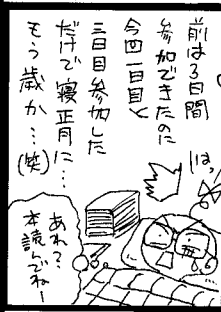 前は3日間
参加できたのに
今回一日目と
三日目参加した
だけで寝正月に…
もう歳か…(笑)
は、
あれ?
本読んでねー